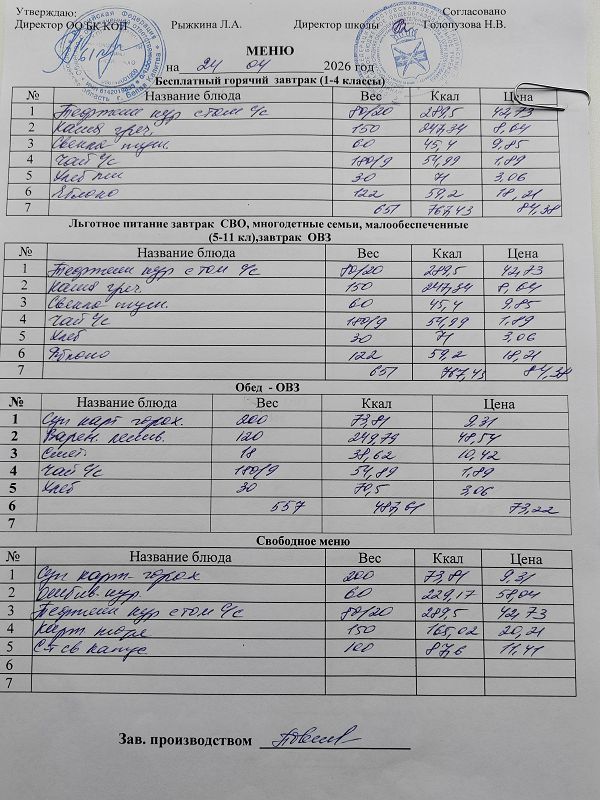 Утверждаю: Согласовано
Директор ОО БК КОП Рыжкина Л.А. Директор школы Голопузова Н.В.
МЕНЮ
на 24 04 2026 год
Бесплатный горячий завтрак (1-4 классы)
№ Название блюда Вес Ккал Цена
1 кур с том 80/20 289,5 42,73
2 Каша греч. 150 247,34 8,64
3 Свекла туш. 60 45,4 9,85
4 Чай 180/9 54,99 1,89
5 Хлеб 30 71 3,06
6 Яблоко 122 59,2 18,21
7 651 767,43 84,38
Льготное питание завтрак СВО, многодетные семьи, малообеспеченные
(5-11 кл),завтрак ОВЗ
№ Название блюда Вес Ккал Цена
1 кур с том 80/20 289,5 42,73
2 Каша греч. 150 247,34 8,64
3 Свекла туш. 60 45,4 9,85
4 Чай 180/9 54,99 1,89
5 Хлеб 30 71 3,06
6 Яблоко 122 59,2 18,21
7 651 767,43 84,38
Обед - ОВЗ
№ Название блюда Вес Ккал Цена
1 Суп карт горох. 200 73,81 9,31
2 Варен. 120 249,79 48,54
3 Смет. 18 38,62 10,42
4 Чай 180/9 54,89 1,89
5 Хлеб 30 70,5 3,06
6 557 487,61 73,22
7
Свободное меню
№ Название блюда Вес Ккал Цена
1 Суп карт горох 200 73,81 9,31
2 кур. 60 229,17 58,04
3 кур с том 80/20 289,5 42,73
4 Карт пюре 150 165,02 20,21
5 св капус 100 87,6 11,41
6
7
Зав. производством